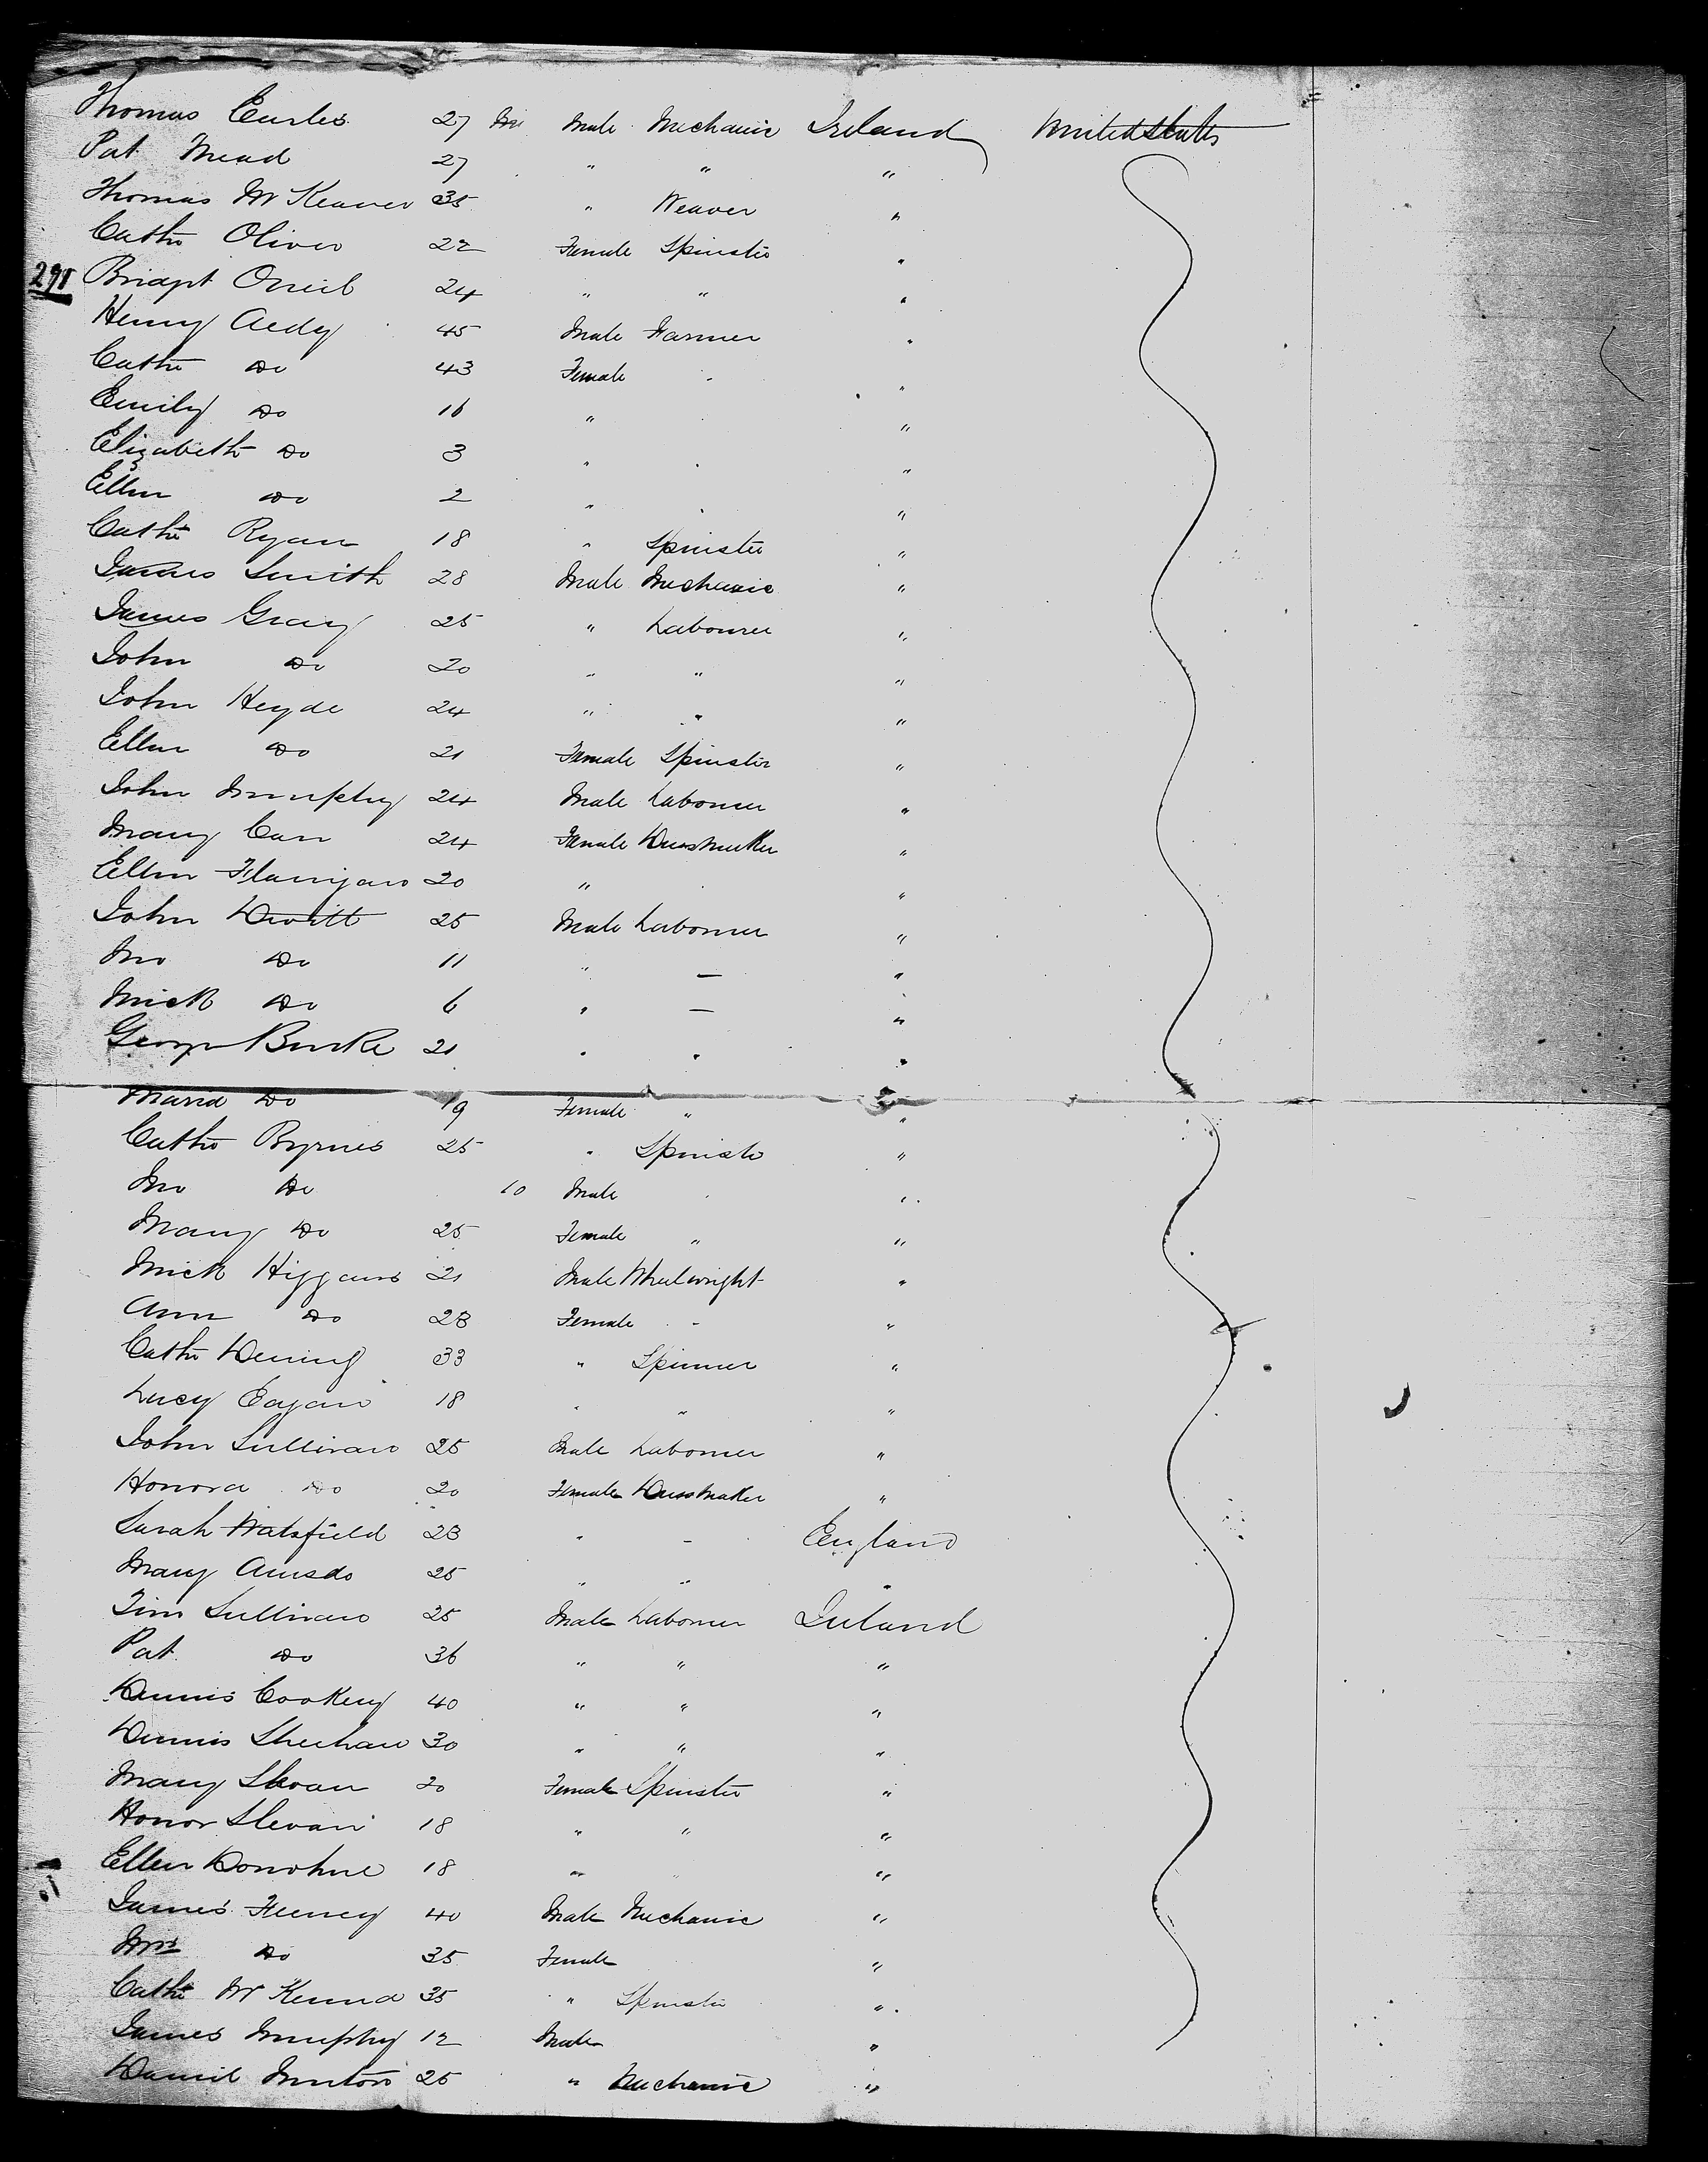 Thomas Earles 27 Male Mechanic Ireland United States
Pat Mead 27 " " "
Thomas McKeaver 35 " Weaver "
Cathe Oliver 22 Female Spinster "
291 Bridgt Oneil 24 " " "
Henry Aedy 45 Male Farmer "
Cathe Do 43 Female " "
Emily Do 16 " "
Elizabeth Do 3 " " "
Ellen Do 2 " " "
Cathe Ryan 18 " Spinster "
James Smith 28 Male Mechanic "
James Gray 25 " Labourer "
John Do 20 " " "
John Heyde 24 " " "
Ellen Do 21 Female Spinster "
John Murphy 24 Male Labourer "
Mary Carr 24 Female Dressmaker "
Ellen Flanigan 20 " "
John Devitt 25 Male Labourer "
Jno Do 11 " — "
Mick Do 6 " — "
George Burke 21 " " "
Maria Do 19 Female " "
Cathe Byrnes 25 " Spinster "
Jno Do 10 Male "
Mary Do 25 Female " "
Mick Higgans 21 Male Wheelwright "
Ann Do 23 Female " "
Cathe Dening 33 " Spinner "
Lucy Eagan 18 " " "
John Sullivan 25 Male Labourer "
Honora Do 20 Female Dressmaker "
Sarah Watsfield 23 " " England
Mary 25 " " "
Tim Sullivan 25 Male Labourer Ireland
Pat Do 36 " " "
Dennis Cookery 40 " " "
Dennis Sheehan 30 " " "
Mary Slevan 20 Female Spinster "
Honor Slevan 18 " " "
Ellen Donohue 18 " "
James Feeney 40 Male Mechanic "
Mrs Do 35 Female "
Cathe McKenna 35 " Spinster "
James Murphy 12 Male "
Daniel Minton 25 " Mechanic "